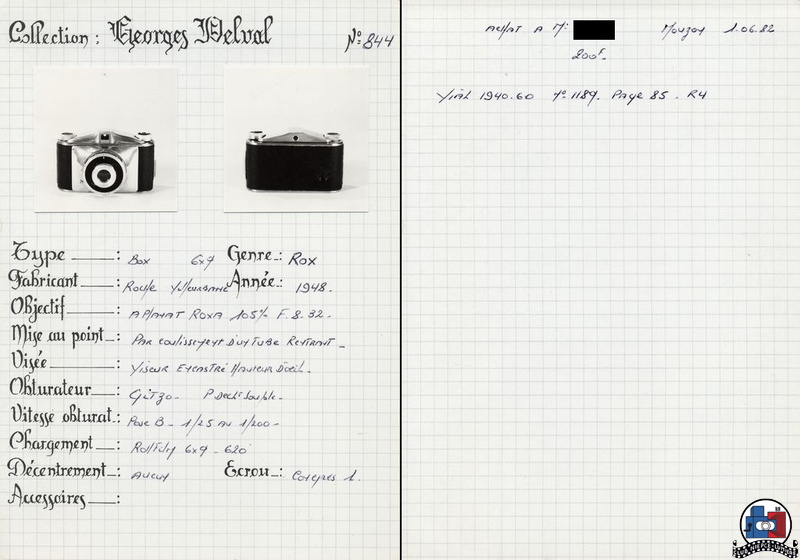 Collection : Georges Delval
N° 844
Type : Box 6x9 Genre : Rox
Fabricant : Année : 1948.
Objectif : Roxa 105% F.8.32.
Mise au point : Par coulissement d'un tube Rentrant
Visée : Viseur Encastré Hauteur D'œil
Obturateur : Gitzo P Decht Souble
Vitesse obturat. : Pose B - 1/25 au 1/200
Chargement : Rollfilm 6x9 - 620
Décentrement : Aucun Ecrou : Congrès 1.
Accessoires :
Achat A Mr Mouzon 1.06.82
200F.
Vial 1940.60 N° 1189. Page 85. R4